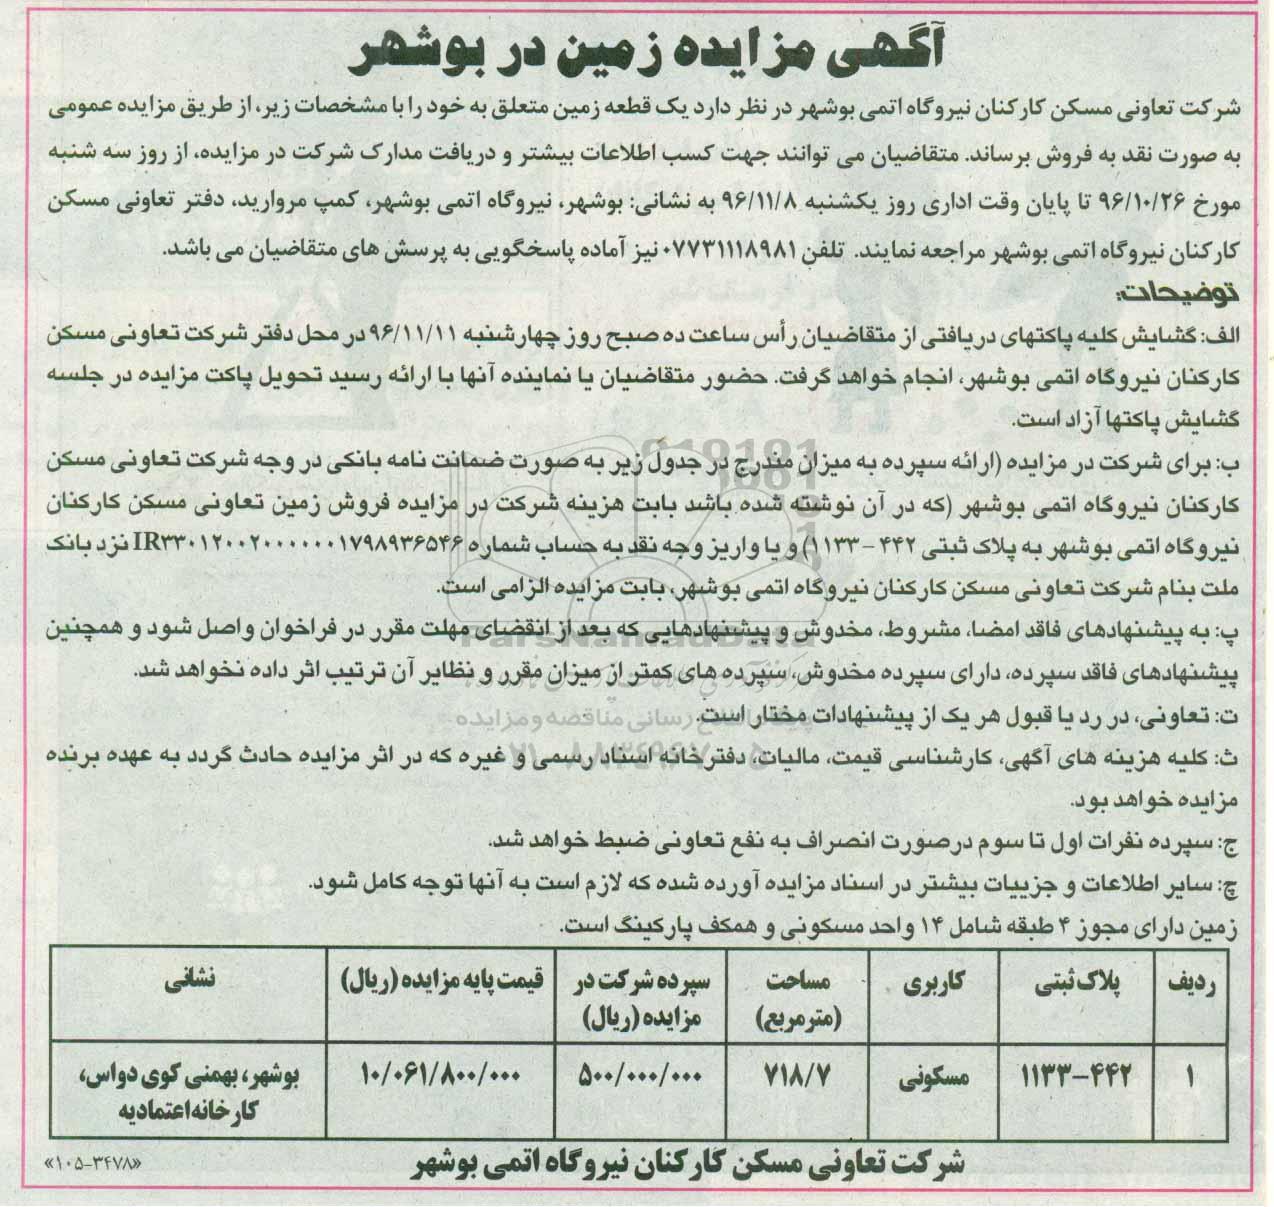 آگهی مزایده زمین در بوشهر
شرکت تعاونی مسکن کارکنان نیروگاه اتمی بوشهر در نظر دارد یک قطعه زمین متعلق به خود را با مشخصات زیر، از طریق مزایده عمومی
به صورت نقد به فروش برساند. متقاضیان می توانند جهت کسب اطلاعات بیشتر و دریافت مدارک شرکت در مزایده، از روز سه شنبه
مورخ ۹۶/۱۰/۲۶ تا پایان وقت اداری روز یکشنبه ۹۶/۱۱/۸ به نشانی: بوشهر، نیروگاه اتمی بوشهر، کمپ مروارید، دفتر تعاونی مسکن
کارکنان نیروگاه اتمی بوشهر مراجعه نمایند. تلفن ۰۷۷۳۱۱۱۸۹۸۱ نیز آماده پاسخگویی به پرسش های متقاضیان می باشد.
توضیحات:
الف: گشایش کلیه پاکتهای دریافتی از متقاضیان رأس ساعت ده صبح روز چهارشنبه ۹۶/۱۱/۱۱ در محل دفتر شرکت تعاونی مسکن
کارکنان نیروگاه اتمی بوشهر، انجام خواهد گرفت. حضور متقاضیان یا نماینده آنها با ارائه رسید تحویل پاکت مزایده در جلسه
گشایش پاکتها آزاد است.
ب: برای شرکت در مزایده (ارائه سپرده به میزان مندرج در جدول زیر به صورت ضمانت نامه بانکی در وجه شرکت تعاونی مسکن
کارکنان نیروگاه اتمی بوشهر (که در آن نوشته شده باشد بابت هزینه شرکت در مزایده فروش زمین تعاونی مسکن کارکنان
نیروگاه اتمی بوشهر به پلاک ثبتی ۴۴۲ – ۱۱۳۳) و یا واریز وجه نقد به حساب شماره IR۳۳۰۱۲۰۰۲۰۰۰۰۰۰۰۱۷۹۸۹۳۶۵۴۶ نزد بانک
ملت بنام شرکت تعاونی مسکن کارکنان نیروگاه اتمی بوشهر، بابت مزایده الزامی است.
پ: به پیشنهادهای فاقد امضا، مشروط، مخدوش و پیشنهادهایی که بعد از انقضای مهلت مقرر در فراخوان واصل شود و همچنین
پیشنهادهای فاقد سپرده، دارای سپرده مخدوش، سپرده های کمتر از میزان مقرر و نظایر آن ترتیب اثر داده نخواهد شد.
ت: تعاونی، در رد یا قبول هر یک از پیشنهادات مختار است.
ث: کلیه هزینه های آگهی، کارشناسی قیمت، مالیات، دفترخانه اسناد رسمی و غیره که در اثر مزایده حادث گردد به عهده برنده
مزایده خواهد بود.
ج: سپرده نفرات اول تا سوم درصورت انصراف به نفع تعاونی ضبط خواهد شد.
چ: سایر اطلاعات و جزییات بیشتر در اسناد مزایده آورده شده که لازم است به آنها توجه کامل شود.
زمین دارای مجوز ۴ طبقه شامل ۱۴ واحد مسکونی و همکف پارکینگ است.
ردیف پلاک ثبتی کاربری مساحت (مترمربع) سپرده شرکت در مزایده (ریال) قیمت پایه مزایده (ریال) نشانی
۱ ۱۱۳۳-۴۴۲ مسکونی ۷۱۸/۷ ۵۰۰/۰۰۰/۰۰۰ ۱۰/۰۶۱/۸۰۰/۰۰۰ بوشهر، بهمنی کوی دواس، کارخانه اعتمادیه
شرکت تعاونی مسکن کارکنان نیروگاه اتمی بوشهر
«۱۰۵-۳۴۷۸»
ParsNamadData
پایگاه اطلاع رسانی مناقصه و مزایده